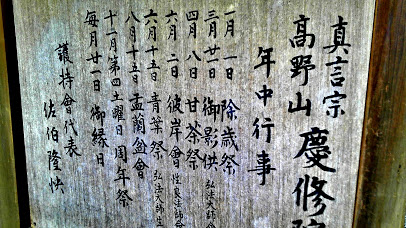 真言宗
高野山 慶修院
年中行事
一月一日 除歳祭
三月廿一日 御影供 弘法大師
四月八日 甘茶祭
六月二日 彼岸會
六月十五日 青葉祭 弘法大師
八月十五日 盂蘭盆會
十一月第四土曜日 周年祭
毎月廿一日 御縁日
護持會代表
佐伯隆快